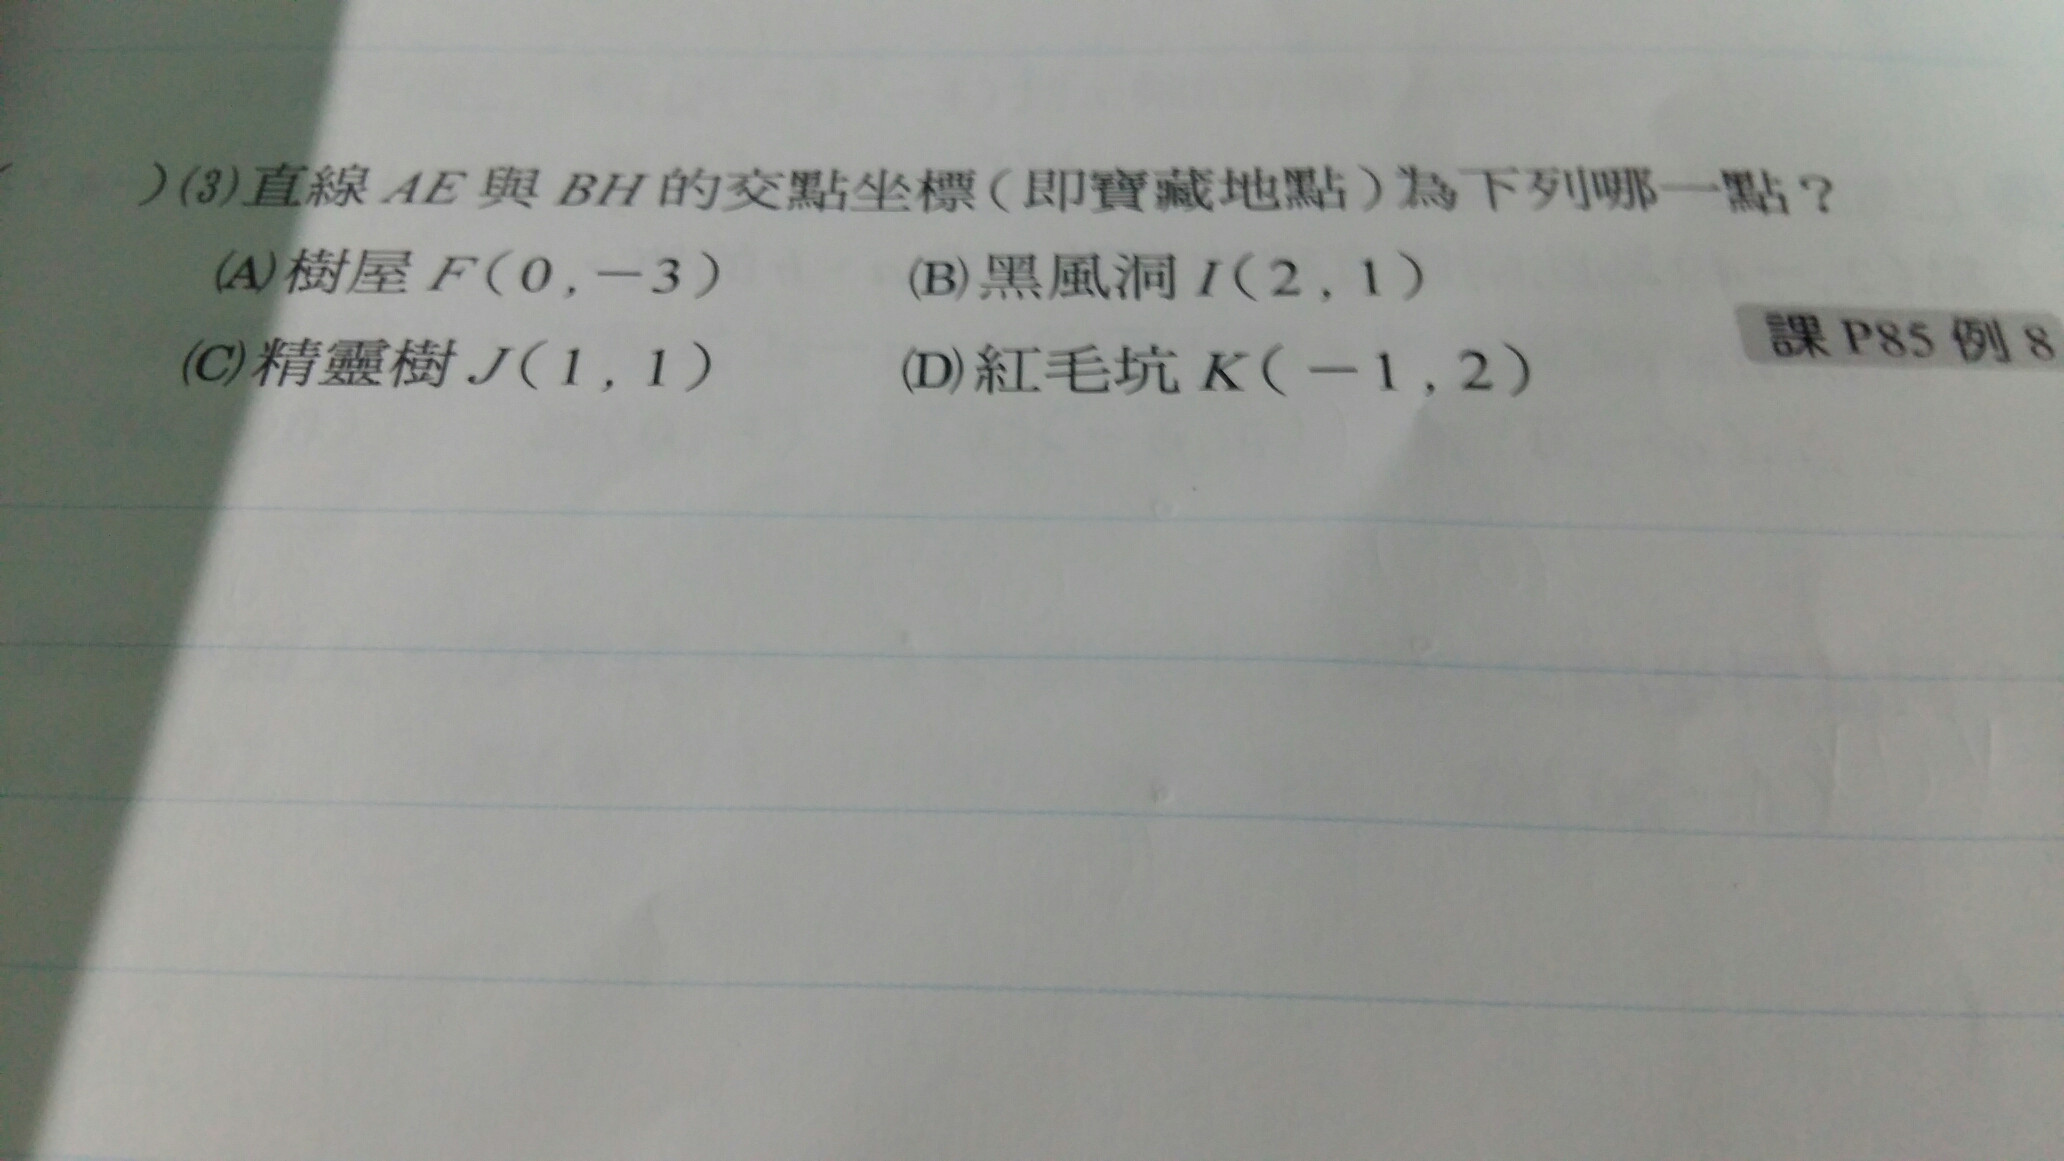 ( )(3)直線 AE 與 BH 的交點坐標(即寶藏地點)為下列哪一點?
(A)樹屋 F(0,-3) (B)黑風洞 I(2,1)
課 P85 例 8
(C)精靈樹 J(1,1) (D)紅毛坑 K(-1,2)